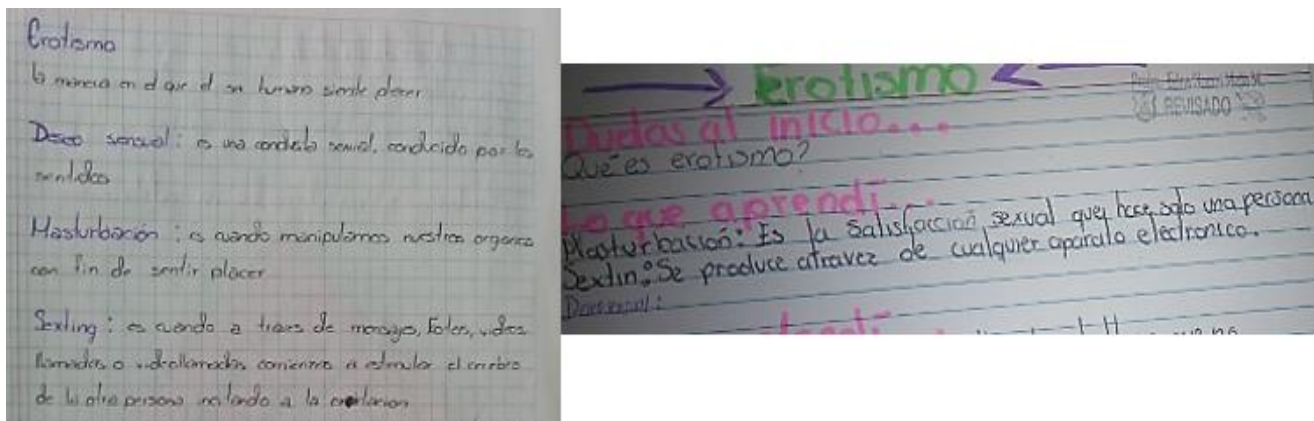 Erotismo
la manera en el que el ser humano siente placer
Deseo sensual: es una conducta sexual, conducido por los
sentidos
Masturbación: es cuando manipulamos nuestros organos
con fin de sentir placer
Sexting: es cuando a traves de mensajes, fotos, videos
llamadas o videollamadas comienzas a estimular el cerebro
de la otra persona incitando a la
erotismo
Dudas al inicio...
Qué es erotismo?
REVISADO
Lo que aprendí...
Masturbasion: Es la satisfacción sexual que hace solo una persona
Sextin: Se produce atravez de cualquier aparato electronico.